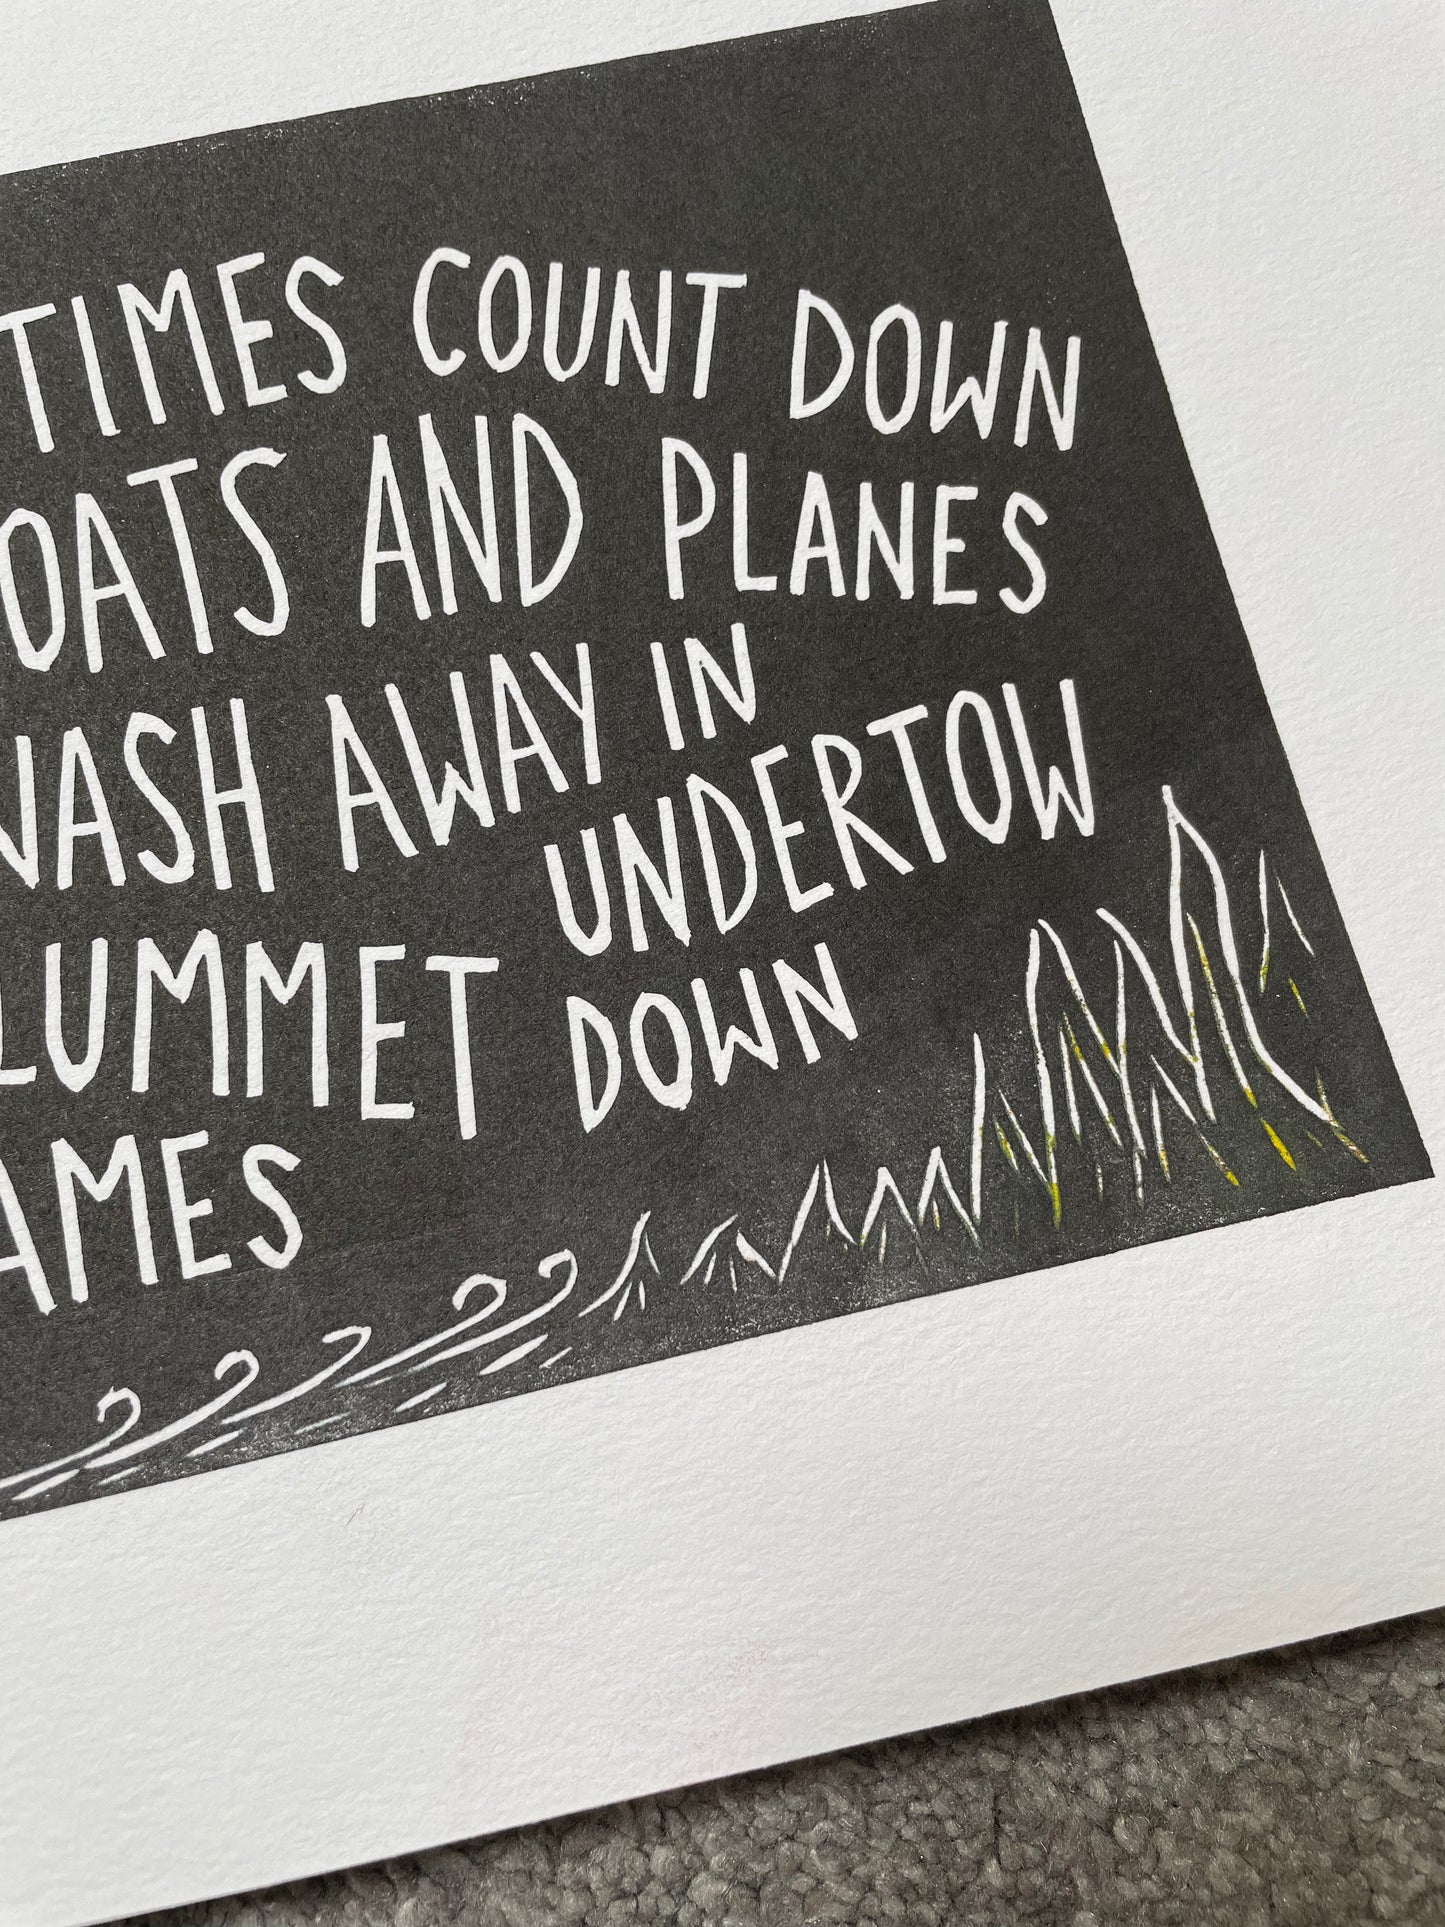 TIMES COUNT DOWN
OATS AND PLANES
WASH AWAY IN
UNDERTOW
LUMMET DOWN
AMES